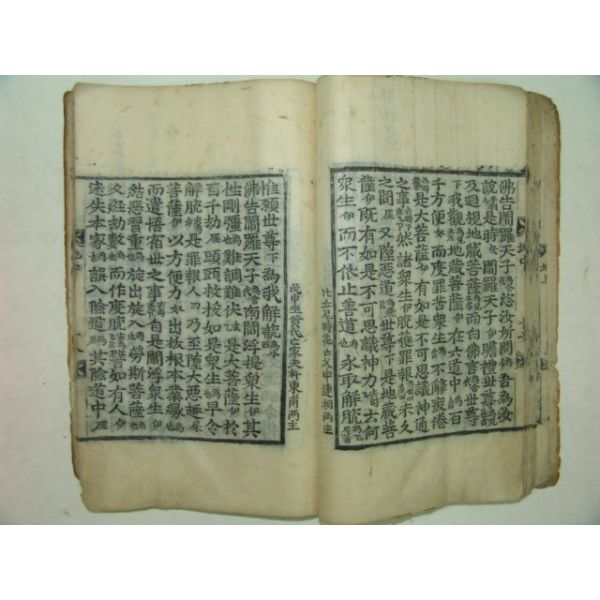 佛告閻羅天子恣汝所問吾為汝
說是時閻羅天子伊瞻禮世尊
及迴視地藏菩薩而白佛言世尊
下我觀地藏菩薩伊在六道中百
千方便而度罪苦衆生不辭疲倦
是大菩薩伊有如是不可思議神通
之事然諸衆生伊脫獲罪報未久
之間又墮惡道世尊下是地藏菩
薩伊旣有如是不可思議神力云何
衆生伊而不依止善道永取解脫
比丘尼時花
戊申生
東甫兩主
惟願世尊下為我解說
佛告閻羅天子南閻浮提衆生伊其
性剛彊難調難伏是大菩薩伊於
百千劫頭頭救拔如是衆生早令
解脫是罪報人乃至墮大惡趣
菩薩伊以方便力出拔根本業緣
而遣悟宿世之事自是閻浮衆生伊
結惡習重旋出旋入勞斯菩薩伊
久經劫數而作度脫如有人伊
迷失本家誤入險道其險道中